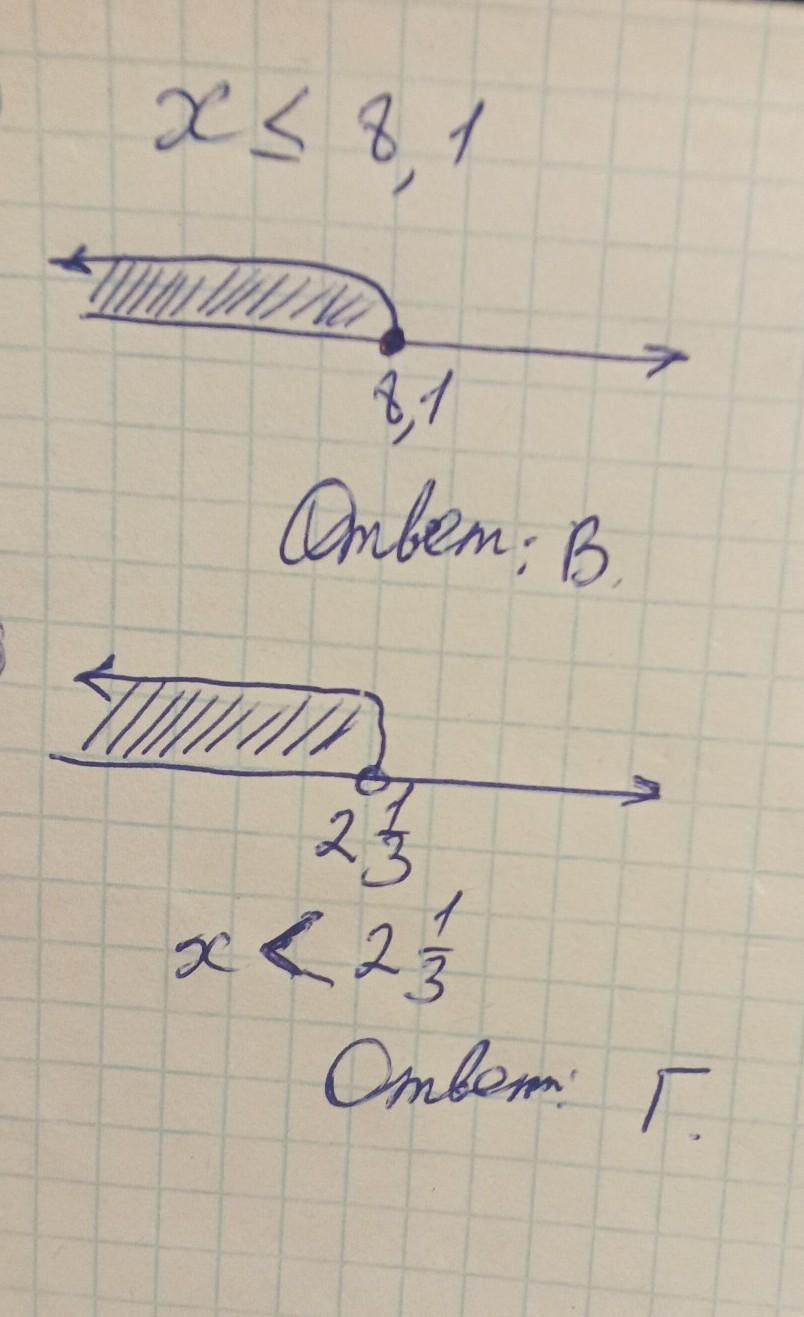 x ≤ 8,1
8,1
Ответ: В.
2 1/3
x < 2 1/3
Ответ: Г.